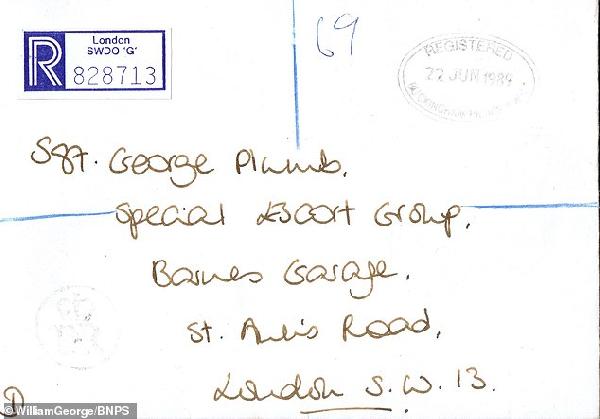 London
SWDO 'G'
R 828713
69
REGISTERED
22 JUN 1989
BUCKINGHAM PALACE
Sgt. George Plumb,
Special Escort Group,
Barnes Garage,
St. Ann's Road,
London S.W. 13.
D
©WilliamGeorge/BNPS